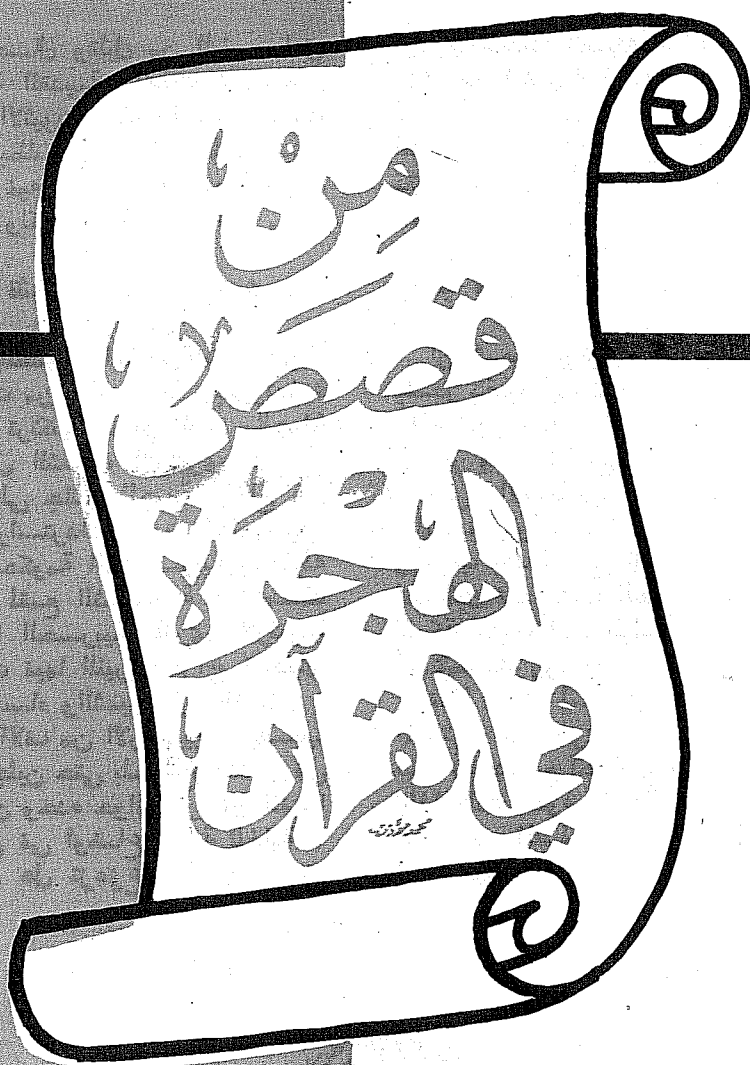 مِنْ
قَصَصِ
الهِجْرَة
في القرآن